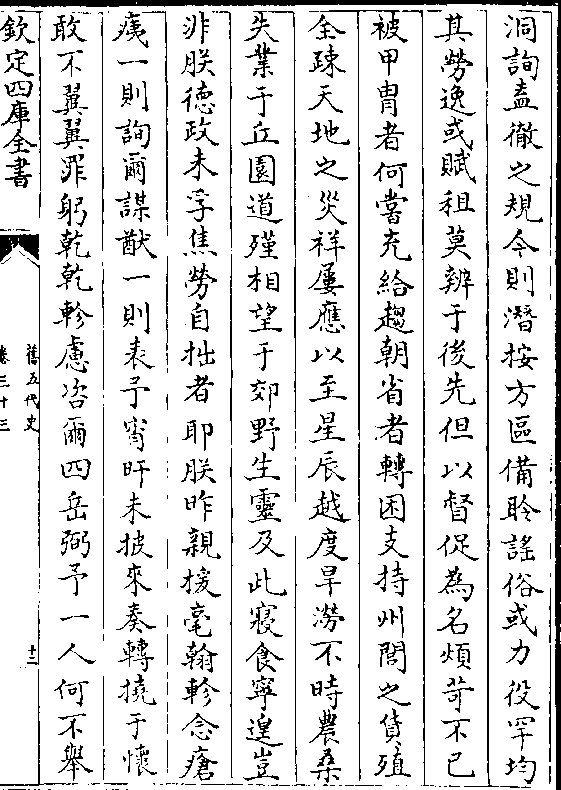 洞詢盍徹之規今則潛按方區備聆謡俗或力役罕均
其勞逸或賦租莫辨于後先但以督促為名煩苛不已
被甲胄者何嘗充給趨朝省者轉困支持州閭之貨殖
全疎天地之災祥屢應以至星辰越度旱澇不時農桑
失業于丘園道殣相望于郊野生靈及此寢食寧遑豈
非朕徳政未孚焦勞自拙者耶朕昨親援毫翰軫念瘡
痍一則詢爾謀猷一則表予宵旰未披來奏轉撓于懷
敢不翼翼罪躬乾乾軫慮咨爾四岳弼予一人何不舉
欽定四庫全書
舊五代史
卷三十三
十二